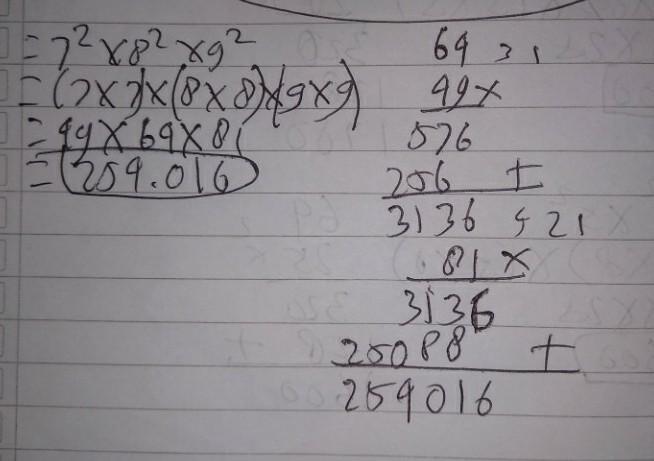 = 7² x 8² x 9²
= (7x7)x(8x8)x(9x9)
= 49 x 64 x 81
= 254.016
64 31
49 x
576
256 +
3136 4 21
81 x
3136
25088 +
254016